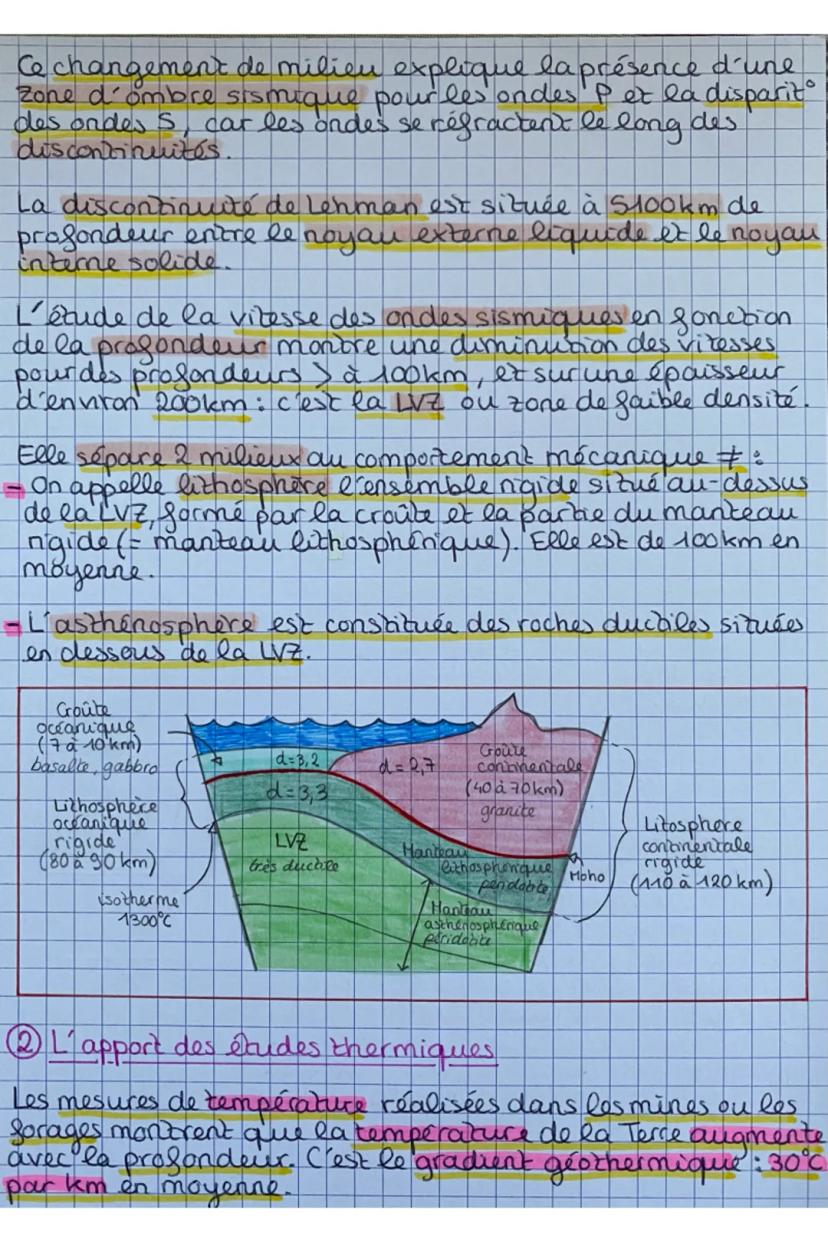 Ce changement de milieu explique la présence d'une
zone d'ombre sismique pour les ondes P et la disparit°
des ondes S, car les ondes se réfractent le long des
discontinuités.
La discontinuité de Lehman est située à 5100km de
profondeur entre le noyau externe liquide et le noyau
interne solide.
L'étude de la vitesse des ondes sismiques en fonction
de la profondeur montre une diminution des vitesses
pour des profondeurs > à 100km, et sur une épaisseur
d'environ 200km : c'est la LVZ ou zone de faible densité.
Elle sépare 2 milieux au comportement mécanique ≠ :
- On appelle lithosphère l'ensemble rigide situé au-dessus
de la LVZ, formé par la croûte et la partie du manteau
rigide (= manteau lithosphérique). Elle est de 100km en
moyenne.
- L'asthénosphère est constituée des roches ductiles situées
en dessous de la LVZ.
Croûte
océanique
(7 à 10km)
basalte, gabbro
Lithosphère
océanique
rigide
(80 à 90 km)
isotherme
1300°C
d=3,2
d=3,3
LVZ
très ductile
d=2,7
Croûte
continentale
(40 à 70km)
granite
Manteau
lithosphérique
péridotite
Moho
Manteau
asthénosphérique
péridotite
Litosphère
continentale
rigide
(110 à 120 km)
② L'apport des études thermiques
Les mesures de température réalisées dans les mines ou les
forages montrent que la température de la Terre augmente
avec la profondeur. C'est le gradient géothermique : 30°C
par km en moyenne.